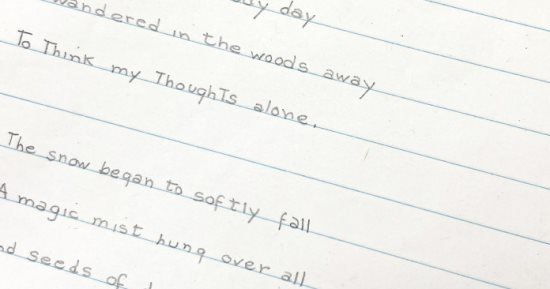 day
wandered in the woods away
To Think my ThoughTs alone.
The snow began to softly fall
A magic mist hung over all
seeds of